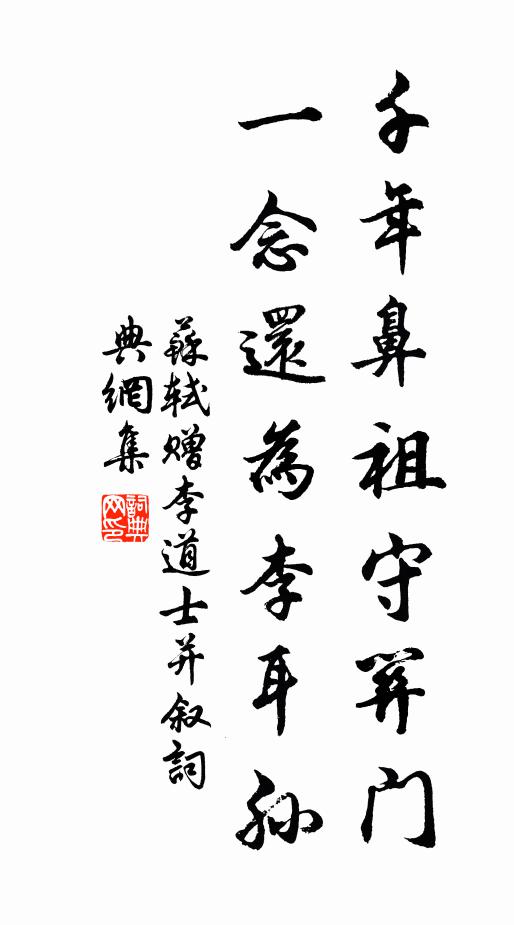 千年鼻祖守關門
一念還為李耳孫
蘇軾贈李道士并叙詞
典網集
詞典網印